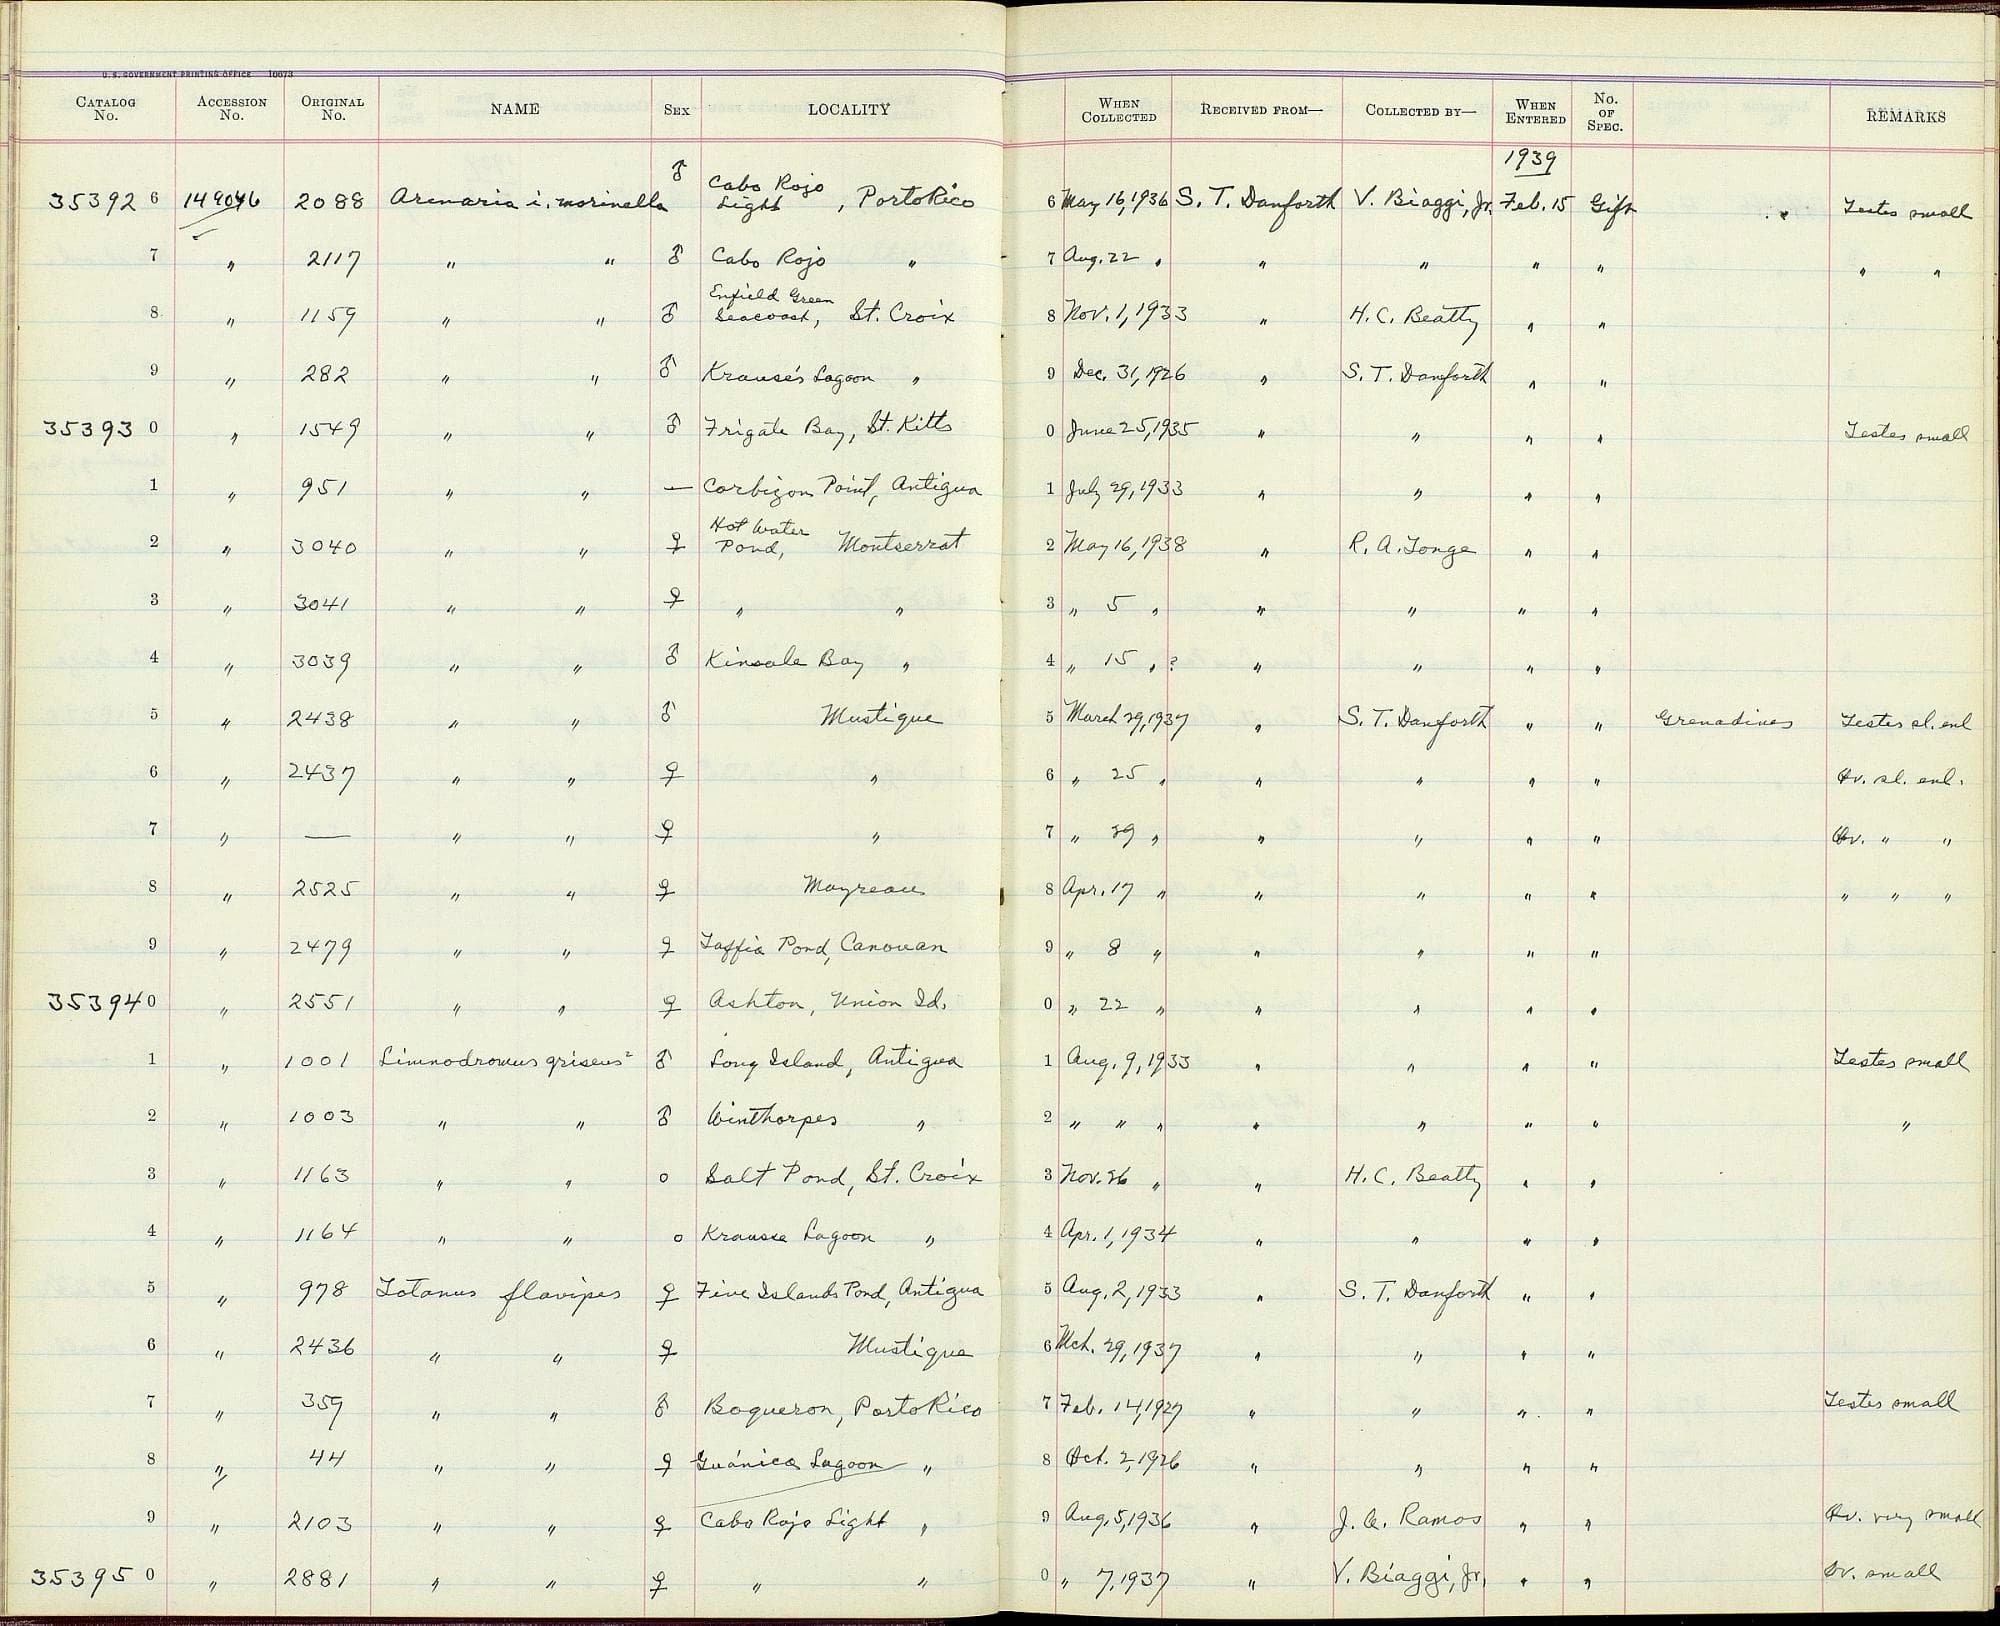 U.S. GOVERNMENT PRINTING OFFICE 10673
CATALOG No. ACCESSION No. ORIGINAL No. NAME SEX LOCALITY WHEN COLLECTED RECEIVED FROM— COLLECTED BY— WHEN ENTERED No. OF SPEC. REMARKS
1939
35392 6 149046 2088 Arenaria i. morinella ♂ Cabo Rojo Light, Porto Rico 6 May 16, 1936 S. T. Danforth V. Biaggi, Jr. Feb. 15 Gift Testes small
7 " 2117 " " ♂ Cabo Rojo " 7 Aug. 22 " " " " " " "
8 " 1159 " " ♂ Enfield Green Seacoast, St. Croix 8 Nov. 1, 1933 " H. C. Beatty " "
9 " 282 " " ♂ Krause's Lagoon " 9 Dec. 31, 1926 " S. T. Danforth " "
35393 0 " 1549 " " ♂ Frigate Bay, St. Kitts 0 June 25, 1935 " " " " Testes small
1 " 951 " " — Corbizon Point, Antigua 1 July 29, 1933 " " " "
2 " 3040 " " ♀ Hot Water Pond, Montserrat 2 May 16, 1938 " R. A. Tonge " "
3 " 3041 " " ♀ " " 3 " 5 " " " " "
4 " 3039 " " ♂ Kinsale Bay " 4 " 15 " ? " " " "
5 " 2438 " " ♂ Mustique 5 March 29, 1937 " S. T. Danforth " " Grenadines Testes sl. enl
6 " 2437 " " ♀ " 6 " 25 " " " " " Ov. sl. enl.
7 " — " " ♀ " 7 " 29 " " " " " Ov. " "
8 " 2525 " " ♀ Mayreau 8 Apr. 17 " " " " " " " "
9 " 2479 " " ♀ Taffia Pond, Canouan 9 " 8 " " " " "
35394 0 " 2551 " " ♀ Ashton, Union Id. 0 " 22 " " " " "
1 " 1001 Limnodromus griseus ♂ Long Island, Antigua 1 Aug. 9, 1933 " " " " Testes small
2 " 1003 " " ♂ Winthorpes " 2 " " " " " " " "
3 " 1163 " " o Salt Pond, St. Croix 3 Nov. 26 " " H. C. Beatty " "
4 " 1164 " " o Krause Lagoon " 4 Apr. 1, 1934 " " " "
5 " 978 Totanus flavipes ♀ Five Islands Pond, Antigua 5 Aug. 2, 1933 " S. T. Danforth " "
6 " 2436 " " ♀ Mustique 6 Mch. 29, 1937 " " " "
7 " 359 " " ♂ Boqueron, Porto Rico 7 Feb. 14, 1927 " " " " Testes small
8 " 44 " " ♀ Guánica Lagoon " 8 Oct. 2, 1926 " " " "
9 " 2103 " " ♀ Cabo Rojo Light " 9 Aug. 5, 1936 " J. A. Ramos " " Ov. very small
35395 0 " 2881 " " ♀ " " 0 " 7, 1937 " V. Biaggi, Jr. " " Ov. small